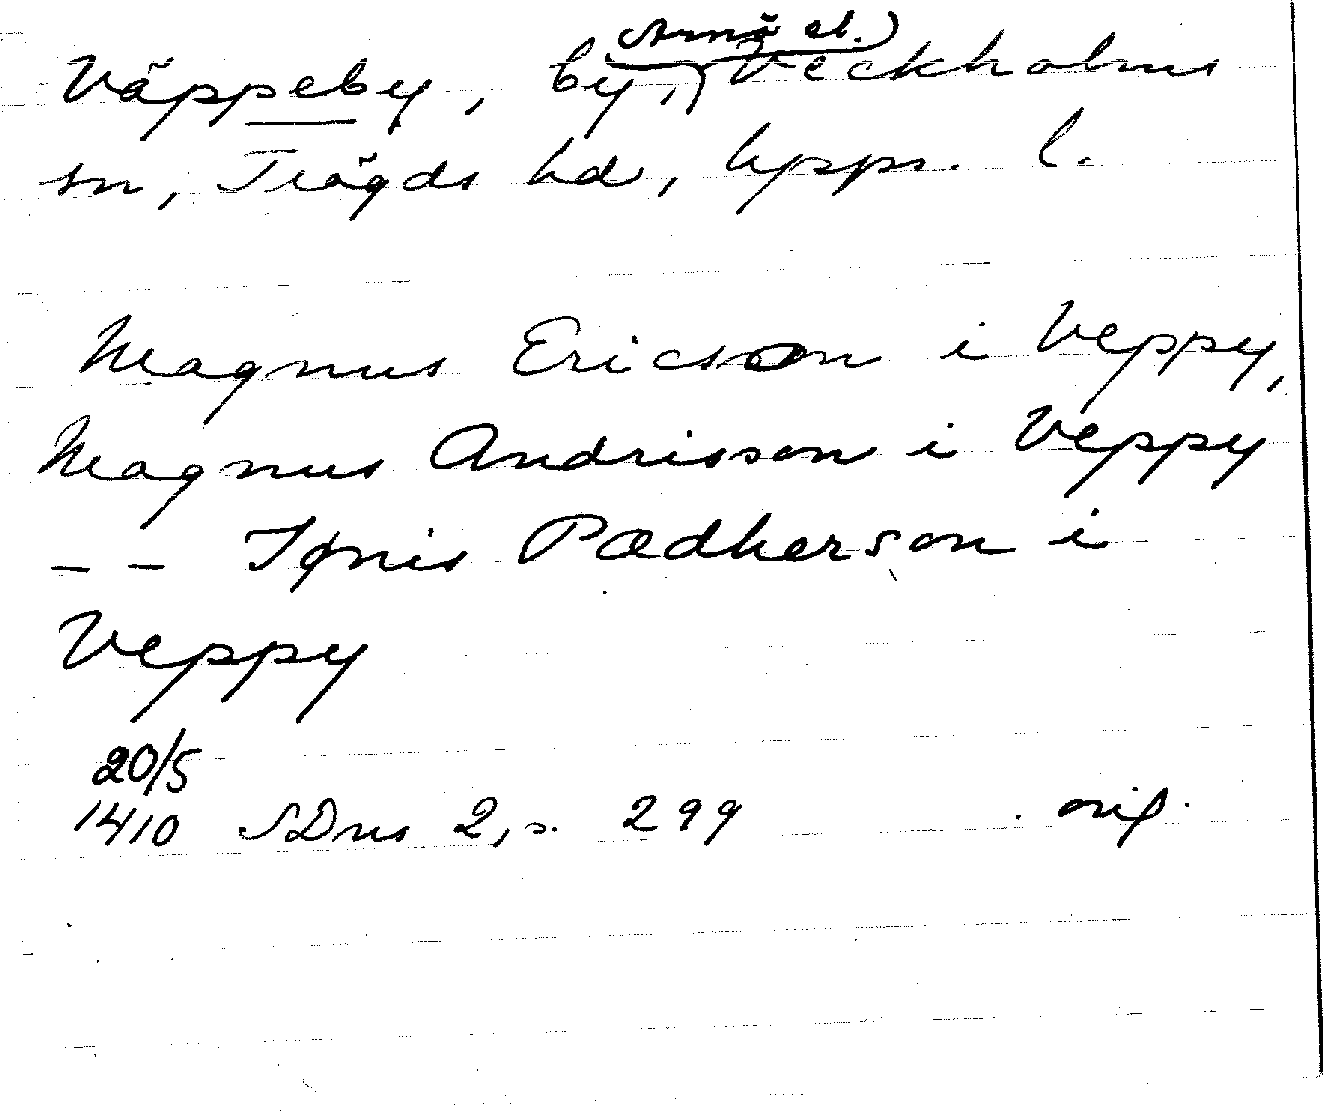 Arnö el.)
Väppeby, by, Veckholms
sn, Trögds hd, Upps. l.
Magnus Ericson i Veppy,
Magnus Andrisson i Veppy
-- Jønis Pædherson i
Veppy
20/5
1410 SDns 2, s. 299 orig.